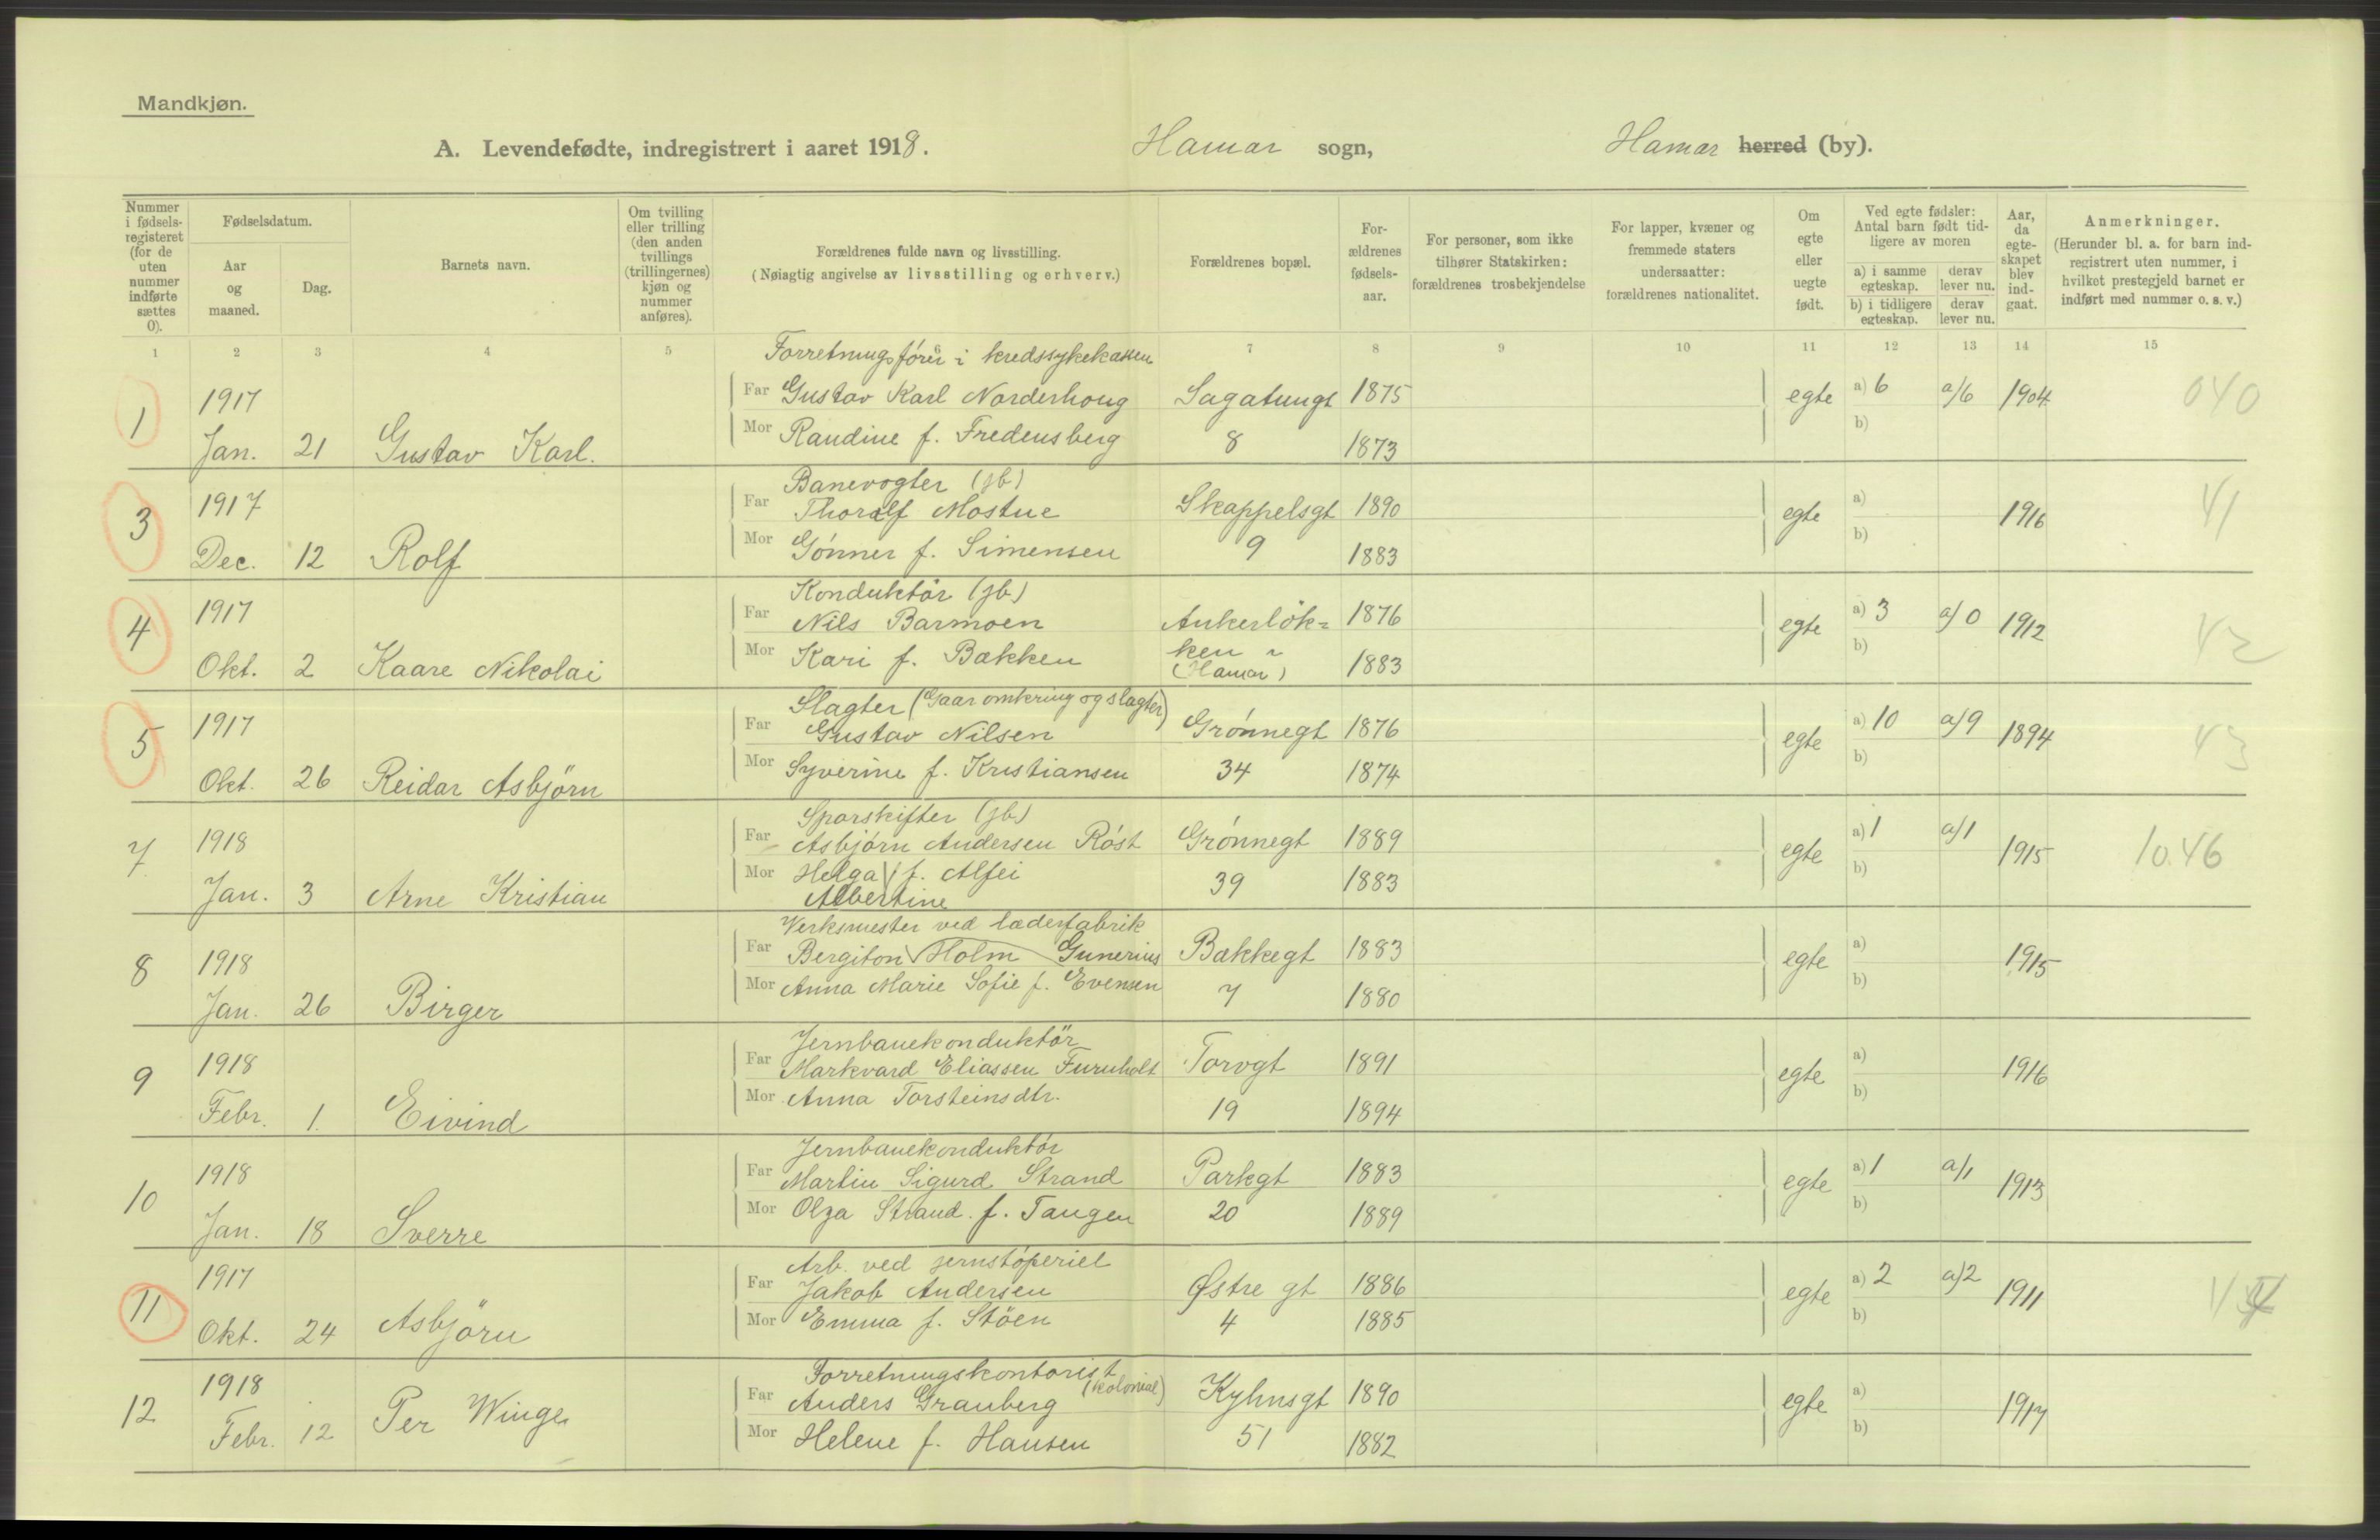 Mandkjøn.
A. Levendefødte, indregistrert i aaret 1918. Hamar sogn, Hamar herred (by).
Nummer i fødsels-registeret (for de uten nummer indførte sættes 0).
Fødselsdatum.
Aar og maaned.
Dag.
Barnets navn.
Om tvilling eller trilling (den anden tvillings (trillingernes) kjøn og nummer anføres).
Forældrenes fulde navn og livsstilling.
(Nøiagtig angivelse av livsstilling og erhverv.)
Forældrenes bopæl.
For-ældrenes fødsels-aar.
For personer, som ikke tilhører Statskirken: forældrenes trosbekjendelse
For lapper, kvæner og fremmede staters undersaatter: forældrenes nationalitet.
Om egte eller uegte født.
Ved egte fødsler: Antal barn født tid-ligere av moren
a) i samme egteskap.
derav lever nu.
b) i tidligere egteskap.
derav lever nu.
Aar, da egte-skapet blev ind-gaat.
Anmerkninger.
(Herunder bl. a. for barn ind-registrert uten nummer, i hvilket prestegjeld barnet er indført med nummer o. s. v.)
1 2 3 4 5 6 7 8 9 10 11 12 13 14 15
Forretningsfører i kredssykekassen
1 1917 Far Gustav Karl Norderhoug Sagatungt 1875 egte a) 6 a/6 1904 040
Jan. 21 Gustav Karl. Mor Randine f. Fredensberg 8 1873 b)
Banevogter (jb)
3 1917 Far Thoralf Mostue Skappelsgt 1890 egte a) 1916 41
Dec. 12 Rolf Mor Gönner f. Simensen 9 1883 b)
Konduktör (jb)
4 1917 Far Nils Barmoen Ankerlök= 1876 egte a) 3 a/0 1912 42
Okt. 2 Kaare Nikolai Mor Kari f. Bækken ken (Hamar) 1883 b)
Slagter (Gaar omkring og slagter)
5 1917 Far Gustav Nilsen Grönnegt 1876 egte a) 10 a/9 1894 43
Okt. 26 Reidar Asbjörn Mor Syverine f. Kristiansen 34 1874 b)
Sporskifter (jb)
7 1918 Far Asbjörn Andersen Röst Grönnegt 1889 egte a) 1 a/1 1915 10.46
Jan. 3 Arne Kristian Mor Helga f. Alfei 39 1883 b)
Albertine
Verksmester ved læderfabrik
8 1918 Far Bergiton Holm Gunerius Bakkegt 1883 egte a) 1915
Jan. 26 Birger Mor Anna Marie Sofie f. Evensen 7 1880 b)
Jernbanekonduktör
9 1918 Far Markvard Eliassen Furuholt Torvgt 1891 egte a) 1916
Febr. 1. Eivind Mor Anna Torsteinsdtr. 19 1894 b)
Jernbanekonduktör
10 1918 Far Martin Sigurd Strand Parkgt 1883 egte a) 1 a/1 1913
Jan. 18 Sverre Mor Olga Strand f. Tangen 20 1889 b)
Arb. ved jernstöperiet
11 1917 Far Jakob Andersen Østre gt 1886 egte a) 2 a/2 1911
Okt. 24 Asbjörn Mor Emma f. Stöen 4 1885 b)
Forretningskontorist (kolonial)
12 1918 Far Anders Granberg Kyhnsgt 1890 egte a) 1917
Febr. 12 Per Winge Mor Helene f. Hansen 51 1882 b)